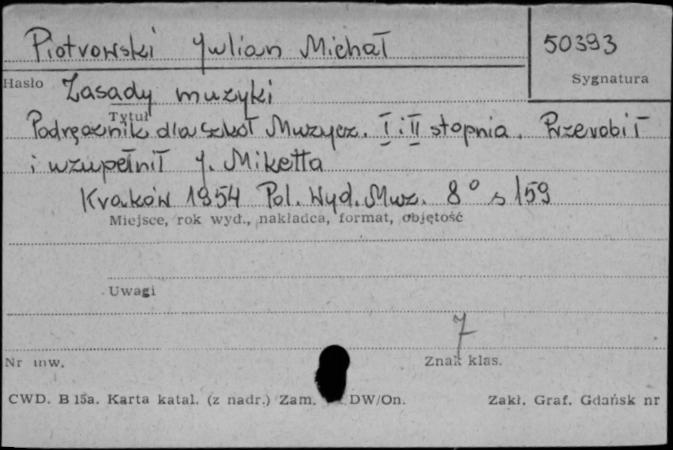 Piotrowski Julian Michał
50393
Hasło
Sygnatura
Zasady muzyki
Tytuł
Podręcznik dla szkół Muzycz. I i II stopnia. Przerobił
i uzupełnił J. Miketta
Kraków 1954 Pol. Wyd. Muz. 8° s 159
Miejsce, rok wyd., nakładca, format, objętość
Uwagi
7
Nr inw.
Znak klas.
CWD. B 15a. Karta katal. (z nadr.) Zam. DW/On.
Zakł. Graf. Gdańsk nr